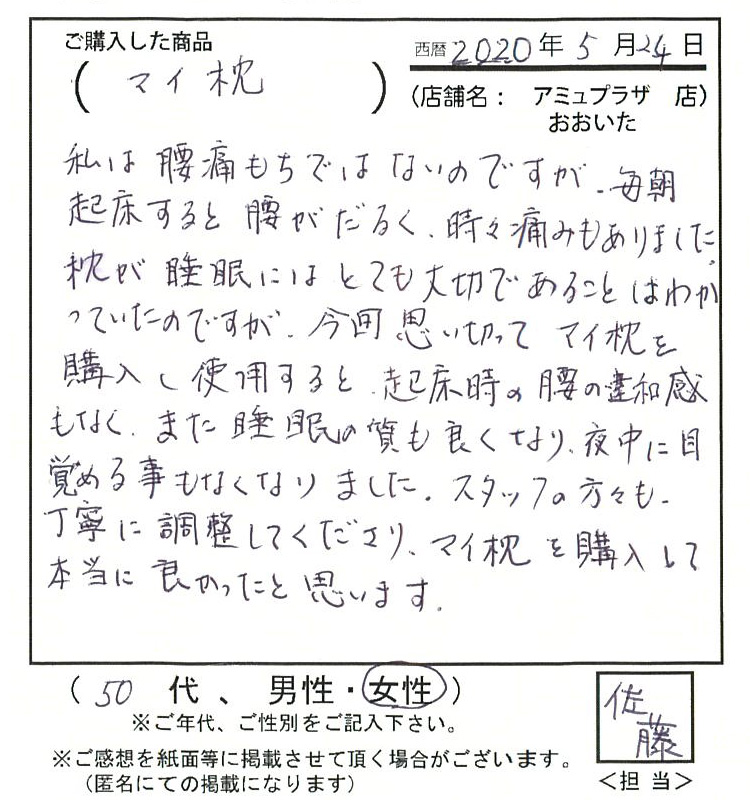 ご購入した商品
西暦 2020年5月24日
(マイ枕)
(店舗名： アミュプラザ 店)
おおいた
私は腰痛もちではないのですが、毎朝
起床すると腰がだるく、時々痛みもありました。
枕が睡眠にはとても大切であることはわか
っていたのですが、今回思い切ってマイ枕を
購入し使用すると、起床時の腰の違和感
もなく、また睡眠の質も良くなり、夜中に目
覚める事もなくなりました。スタッフの方々も、
丁寧に調整してくださり、マイ枕を購入して
本当に良かったと思います。
(50 代、男性・女性)
※ご年代、ご性別をご記入下さい。
※ご感想を紙面等に掲載させて頂く場合がございます。
(匿名にての掲載になります)
佐藤
＜担当＞